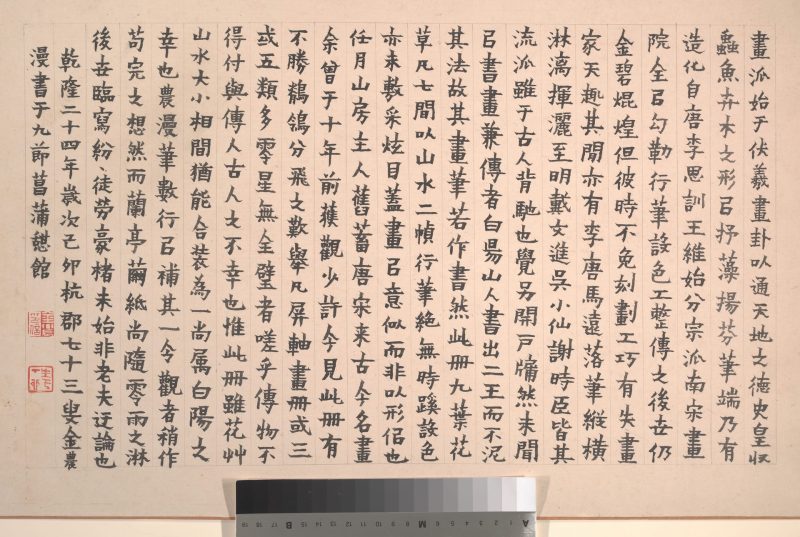 畫派始于伏羲畫卦以通天地之德史皇収
蟲魚卉木之形㠯抒藻揚芬筆端乃有
造化自唐李思訓王維始分宗派南宋畫
院全㠯勾勒行筆設色工整傳之後世仍
金碧焜煌但彼時不免刻劃工巧有失畫
家天趣其閒亦有李唐馬遠落筆縱橫
淋漓揮灑至明戴文進吳小仙謝時臣皆其
流派雖于古人背馳也覺另開戶牖然未聞
㠯書畫兼傳者白昜山人書出二王而不泥
其法故其畫筆若作書然此冊九葉花
草凡七間以山水二幀行筆絕無時蹊設色
亦未敷采炫目蓋畫㠯意似而非以形侣也
任月山房主人舊蓄唐宋來古今名畫
余曾于十年前獲觀少許今見此冊有
不勝鶺鴒分飛之歎舉凡屏軸畫冊或三
或五類多零星無全璧者嗟乎傳物不
得付與傳人古人之不幸也惟此冊雖花艸
山水大小相間猶能合裝為一尚屬白陽之
幸也農漫筆數行㠯補其一令觀者稍作
苟完之想然而蘭亭繭紙尚隨零雨之淋
後世臨寫紛〻徒勞豪楮未始非老夫迂論也
乾隆二十四年歲次己卯杭郡七十三叟金農
漫書于九節菖蒲憇館